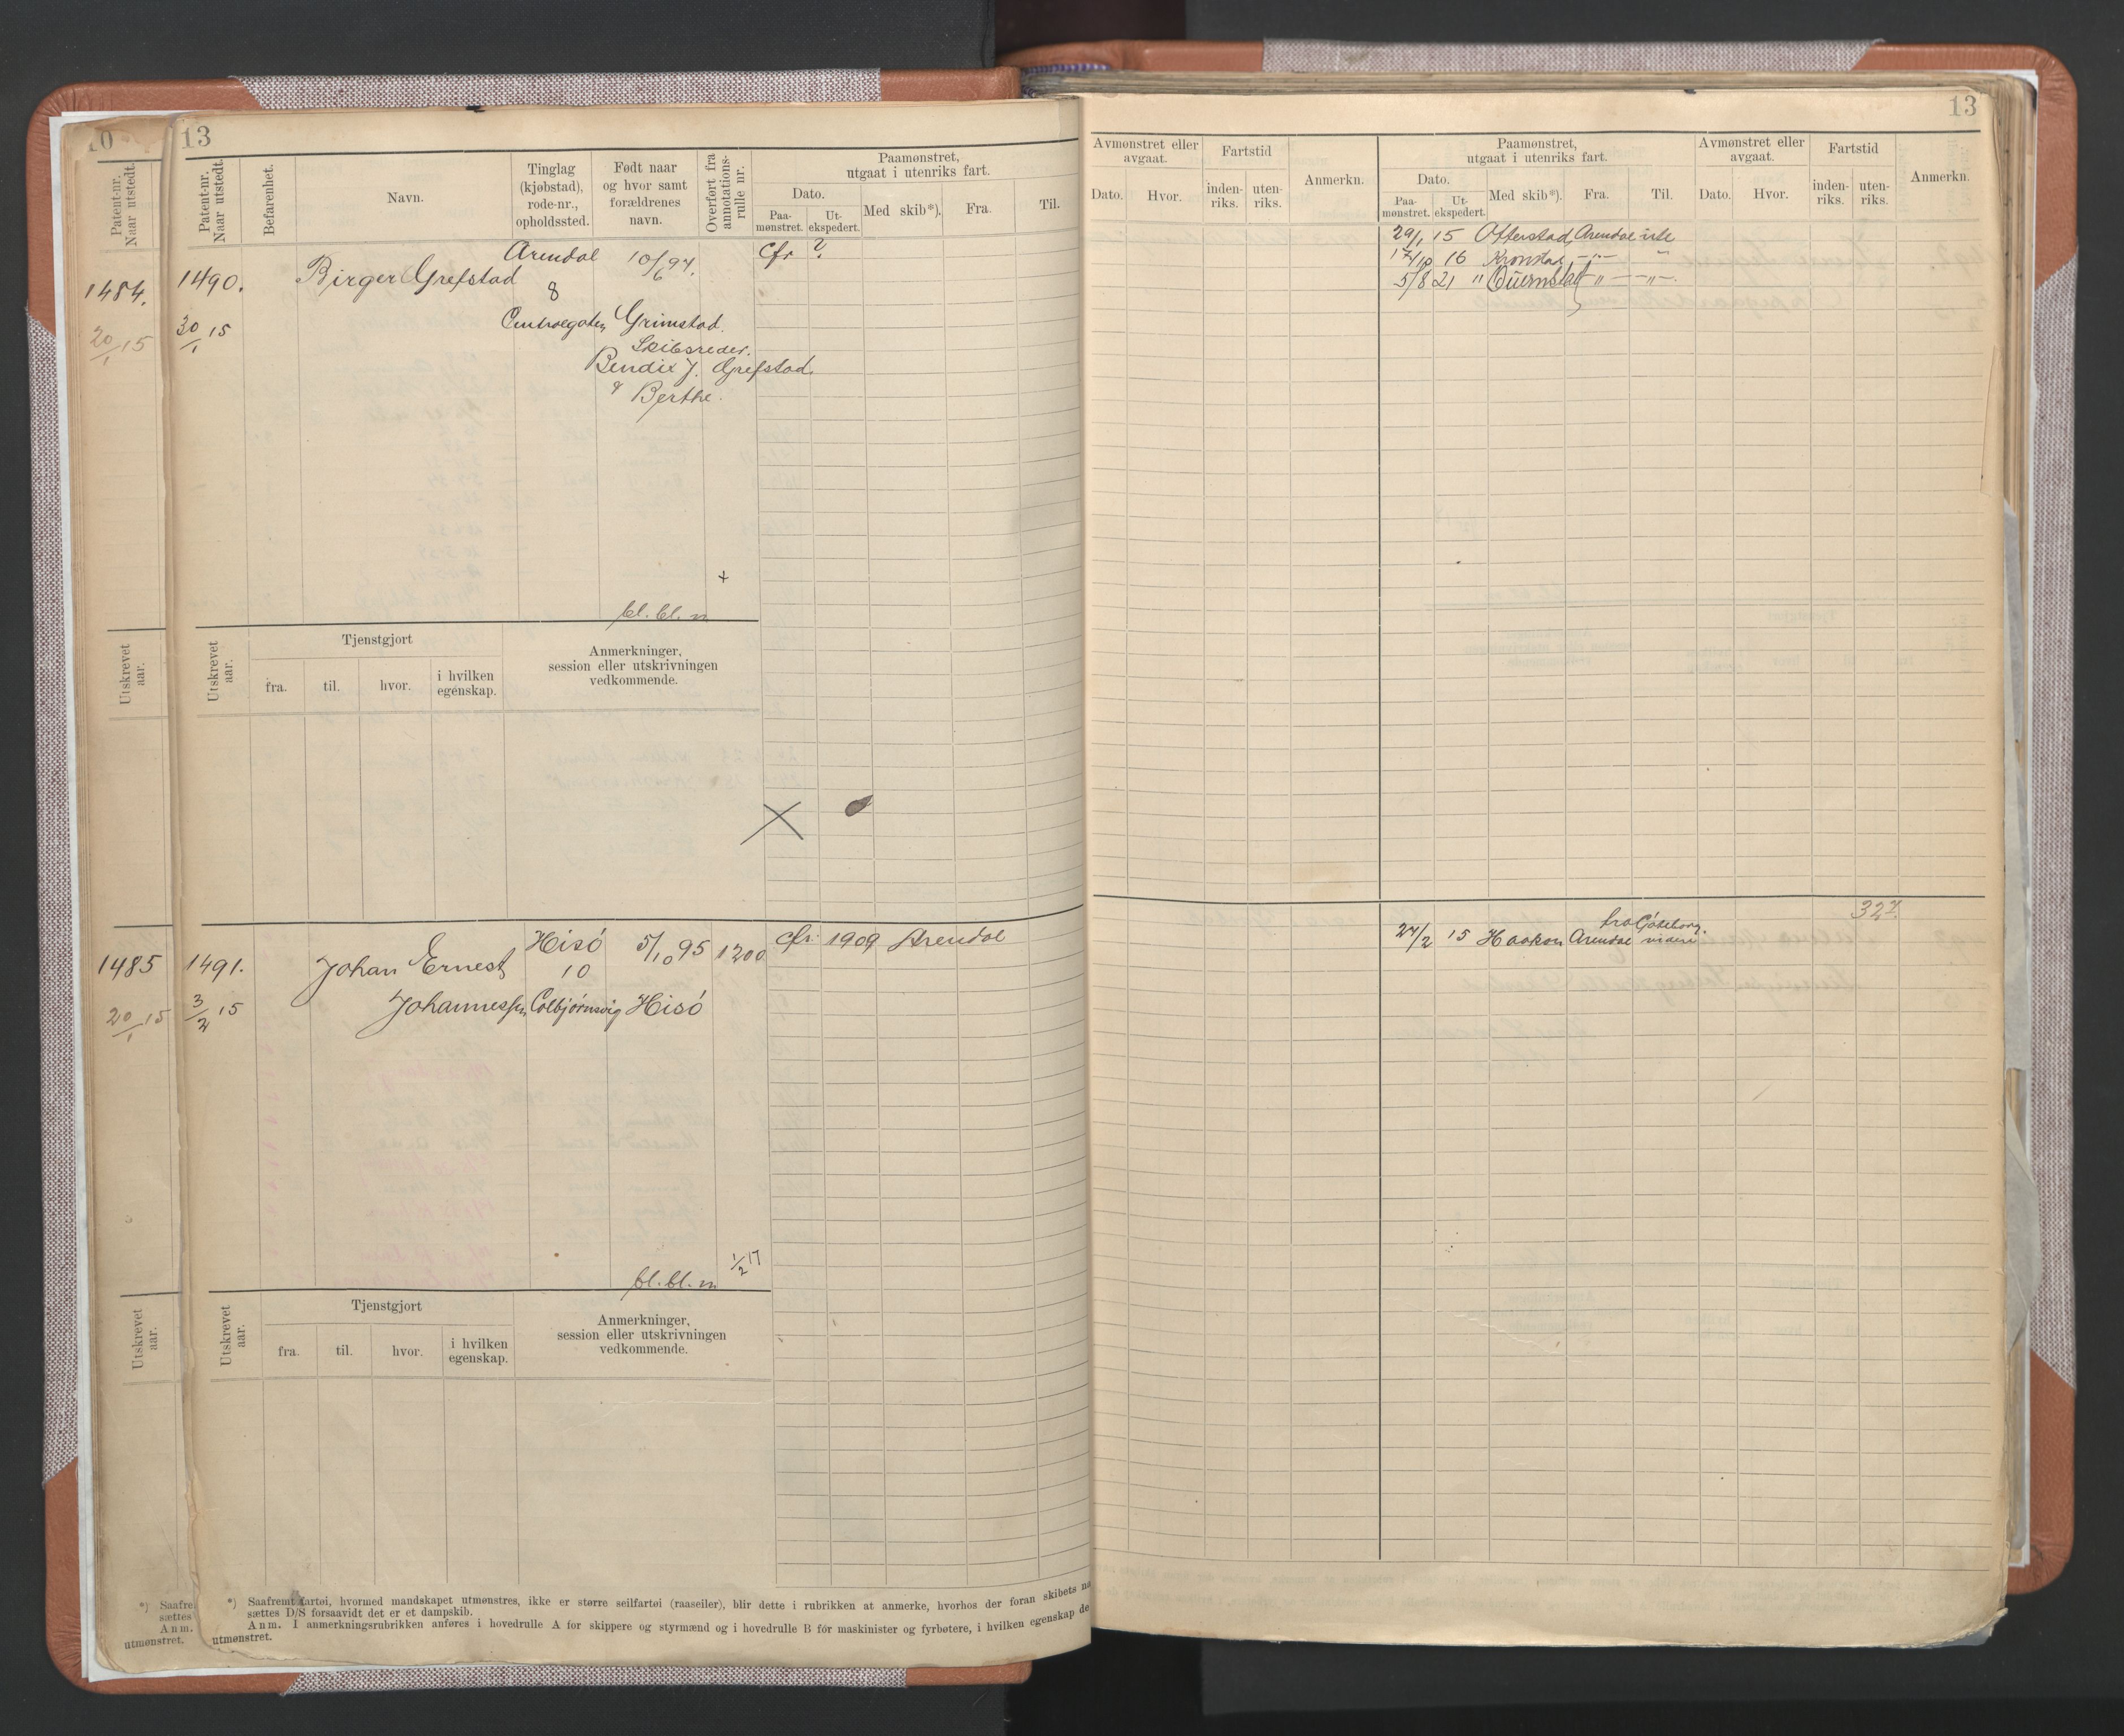 10
13
Patent-nr.
Naar utstedt.
Patent-nr.
Naar utstedt.
Befarenhet.
Navn.
Tinglag
(kjøbstad),
rode-nr.,
opholdssted.
Født naar
og hvor samt
forældrenes
navn.
Overført fra
annotations-
rulle nr.
Paamønstret,
utgaat i utenriks fart.
Dato.
Paa-
mønstret.
Ut-
ekspedert.
Med skib*).
Fra.
Til.
1484.
20/1 15
1490.
30/1 15
Birger Grefstad
Arendal
8
Centralgaten
10/6 97.
Grimstad.
Skibsreder.
Bendix J. Grefstad.
& Berthe.
cfr ?
+
bl. bl. m
Utskrevet
aar.
Utskrevet
aar.
Tjenstgjort
fra.
til.
hvor.
i hvilken
egenskap.
Anmerkninger,
session eller utskrivningen
vedkommende.
1485
20/1 15
1491.
3/2 15
Johan Ernest
Johannessen,
Hisö
10
Colbjørnsvig
5/10 95
Hisö
1200
cfr 1909 Arendal
1/2 17
bl. bl. m
Utskrevet
aar.
Utskrevet
aar.
Tjenstgjort
fra.
til.
hvor.
i hvilken
egenskap.
Anmerkninger,
session eller utskrivningen
vedkommende.
*) Saafre
sættes
Anm.
utmønstret.
*) Saafremt fartøi, hvormed mandskapet utmønstres, ikke er større seilfartøi (raaseiler), blir dette i rubrikken at anmerke, hvorhos der foran skibets na
sættes D/S forsaavidt det er et dampskib.
Anm. I anmerkningsrubrikken anføres i hovedrulle A for skippere og styrmænd og i hovedrulle B for maskinister og fyrbøtere, i hvilken egenskap de
utmønstret.
13
Avmønstret eller
avgaat.
Dato.
Hvor.
Fartstid
inden-
riks.
uten-
riks.
Anmerkn.
Paamønstret,
utgaat i utenriks fart.
Dato.
Paa-
mønstret.
Ut-
ekspedert.
Med skib*).
Fra.
Til.
Avmønstret eller
avgaat.
Dato.
Hvor.
Fartstid
inden-
riks.
uten-
riks.
Anmerkn.
29/1 15 Otterstad, Arendal
17/10 16 Kronstad -"- "
5/8 21 " -"- -"-
24/2 15 Haakon Arendal
fra Göteborg.
327